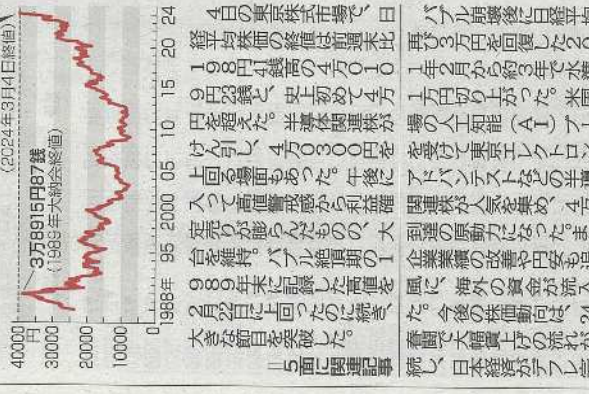 (2024年3月4日終値)
3万8915円87銭
(1989年大納会終値)
40000
円
30000
20000
10000
0
1988年
95
2000
05
10
15
20
24
4日の東京株式市場で、日
経平均株価の終値は前週末比
198円41銭高の4万010
9円23銭と、史上初めて4万
円を超えた。半導体関連株が
けん引し、4万0300円を
上回る場面もあった。午後に
入って高値警戒感から利益確
定売りが膨らんだものの、大
台を維持。バブル絶頂期の1
989年末に記録した高値を
2月22日に上回ったのに続き、
大きな節目を突破した。
=5面に関連記事
バブル崩壊後に日経平均
再び3万円を回復した20
1年2月から約3年で水準
1万円切り上がった。米国
場の人工知能(AI)ブー
を受けて東京エレクトロン
アドバンテストなどの半導
関連株が人気を集め、4万
到達の原動力になった。ま
企業業績の改善や円安も追
風に、海外の資金が流入
た。今後の株価動向は、24
春闘で大幅賃上げの流れが
続し、日本経済がデフレ完